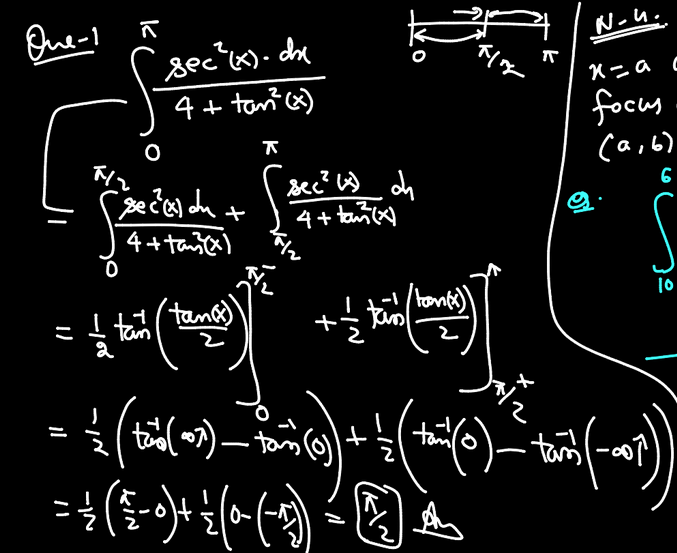 Que-1
∫₀^π sec²(x)·dx / (4 + tan²(x))
0 π/2 π
= ∫₀^{π/2} sec²(x) dx / (4 + tan²(x)) + ∫_{π/2}^π sec²(x) / (4 + tan²(x)) dx
= 1/2 tan⁻¹(tan(x)/2)]₀^{π/2⁻} + 1/2 tan⁻¹(tan(x)/2)]_{π/2⁺}^π
= 1/2 (tan⁻¹(∞) − tan⁻¹(0)) + 1/2 (tan⁻¹(0) − tan⁻¹(−∞))
= 1/2 (π/2 − 0) + 1/2 (0 − (−π/2)) = π/2 Ans
x = a
focus
(a, b)
Q.
∫ 6
10